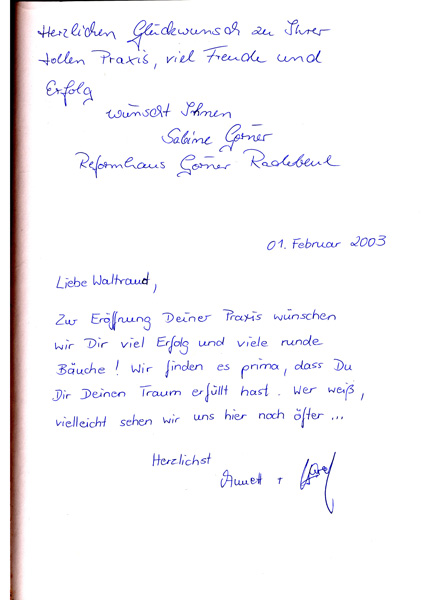 Herzlichen Glückwunsch zu Ihrer
tollen Praxis, viel Freude und
Erfolg
wünscht Ihnen
Sabine Görner
Reformhaus Görner Radebeul
01. Februar 2003
Liebe Waltraud,
Zur Eröffnung Deiner Praxis wünschen
wir Dir viel Erfolg und viele runde
Bäuche! Wir finden es prima, dass Du
Dir Deinen Traum erfüllt hast. Wer weiß,
vielleicht sehen wir uns hier noch öfter...
Herzlichst
Annett +